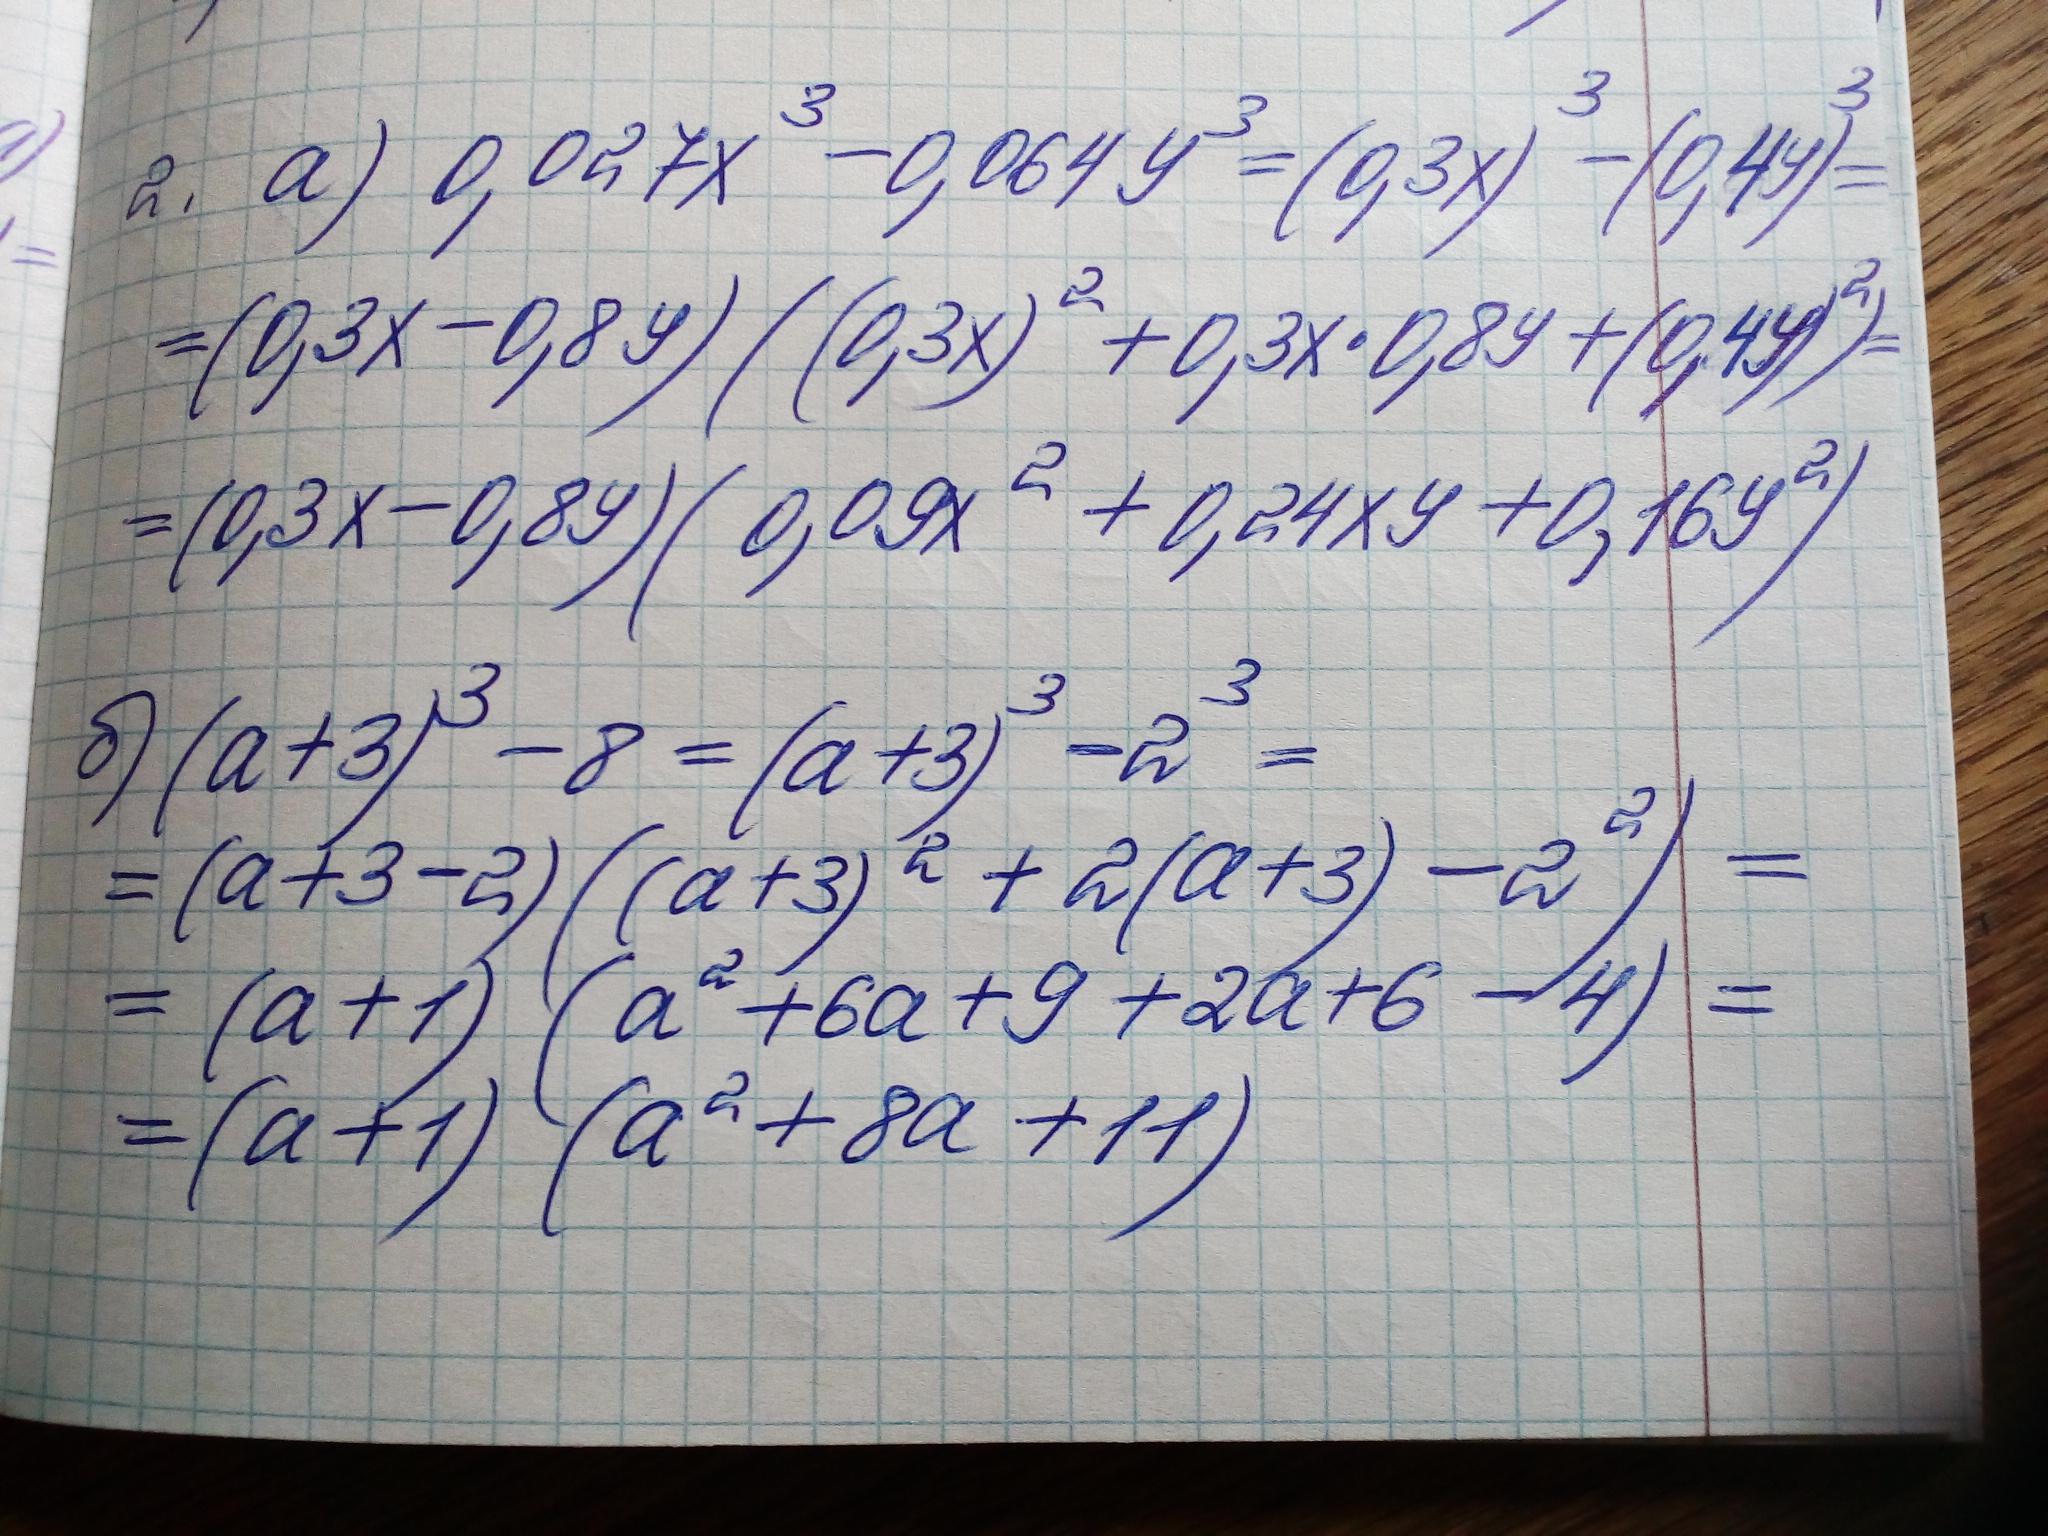 2. а) 0,027x³ - 0,064y³ = (0,3x)³ - (0,4y)³ =
= (0,3x - 0,8y)((0,3x)² + 0,3x · 0,8y + (0,4y)²) =
= (0,3x - 0,8y)(0,09x² + 0,24xy + 0,16y²)
б) (a+3)³ - 8 = (a+3)³ - 2³ =
= (a+3-2)((a+3)² + 2(a+3) - 2²) =
= (a+1)(a² + 6a + 9 + 2a + 6 - 4) =
= (a+1)(a² + 8a + 11)